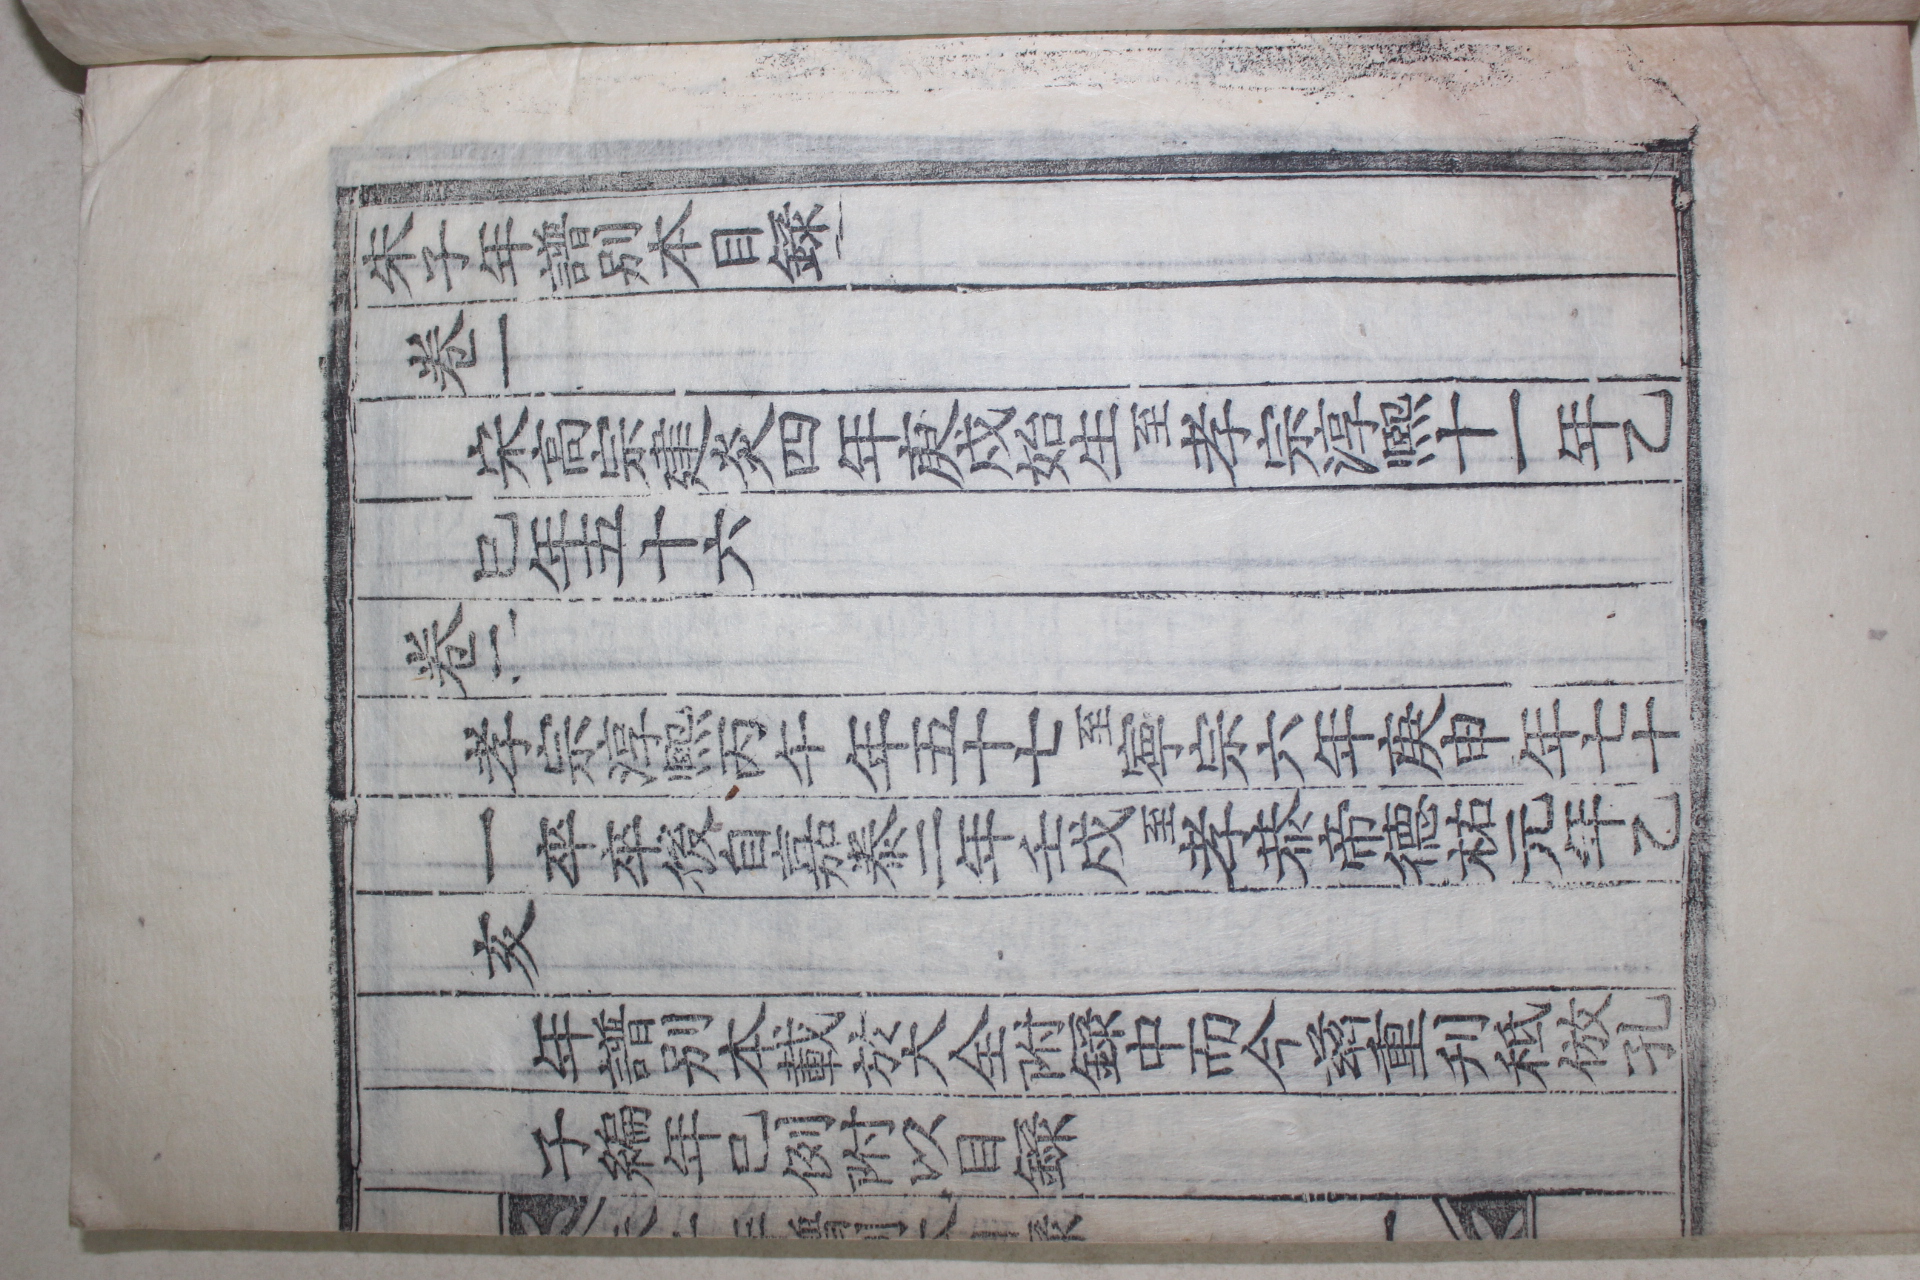 朱子年譜別本目錄
卷一
宋高宗建炎四年庚戌始生至孝宗淳熙十一年乙
巳年五十六
卷二
孝宗淳熙丙午年五十七至寧宗六年庚申年七十
一卒卒後自嘉泰二年壬戌至孝恭帝德祐元年乙
亥
年譜別本載於大全附錄中而今爲重刊秪依孔
子編年已例附以目錄